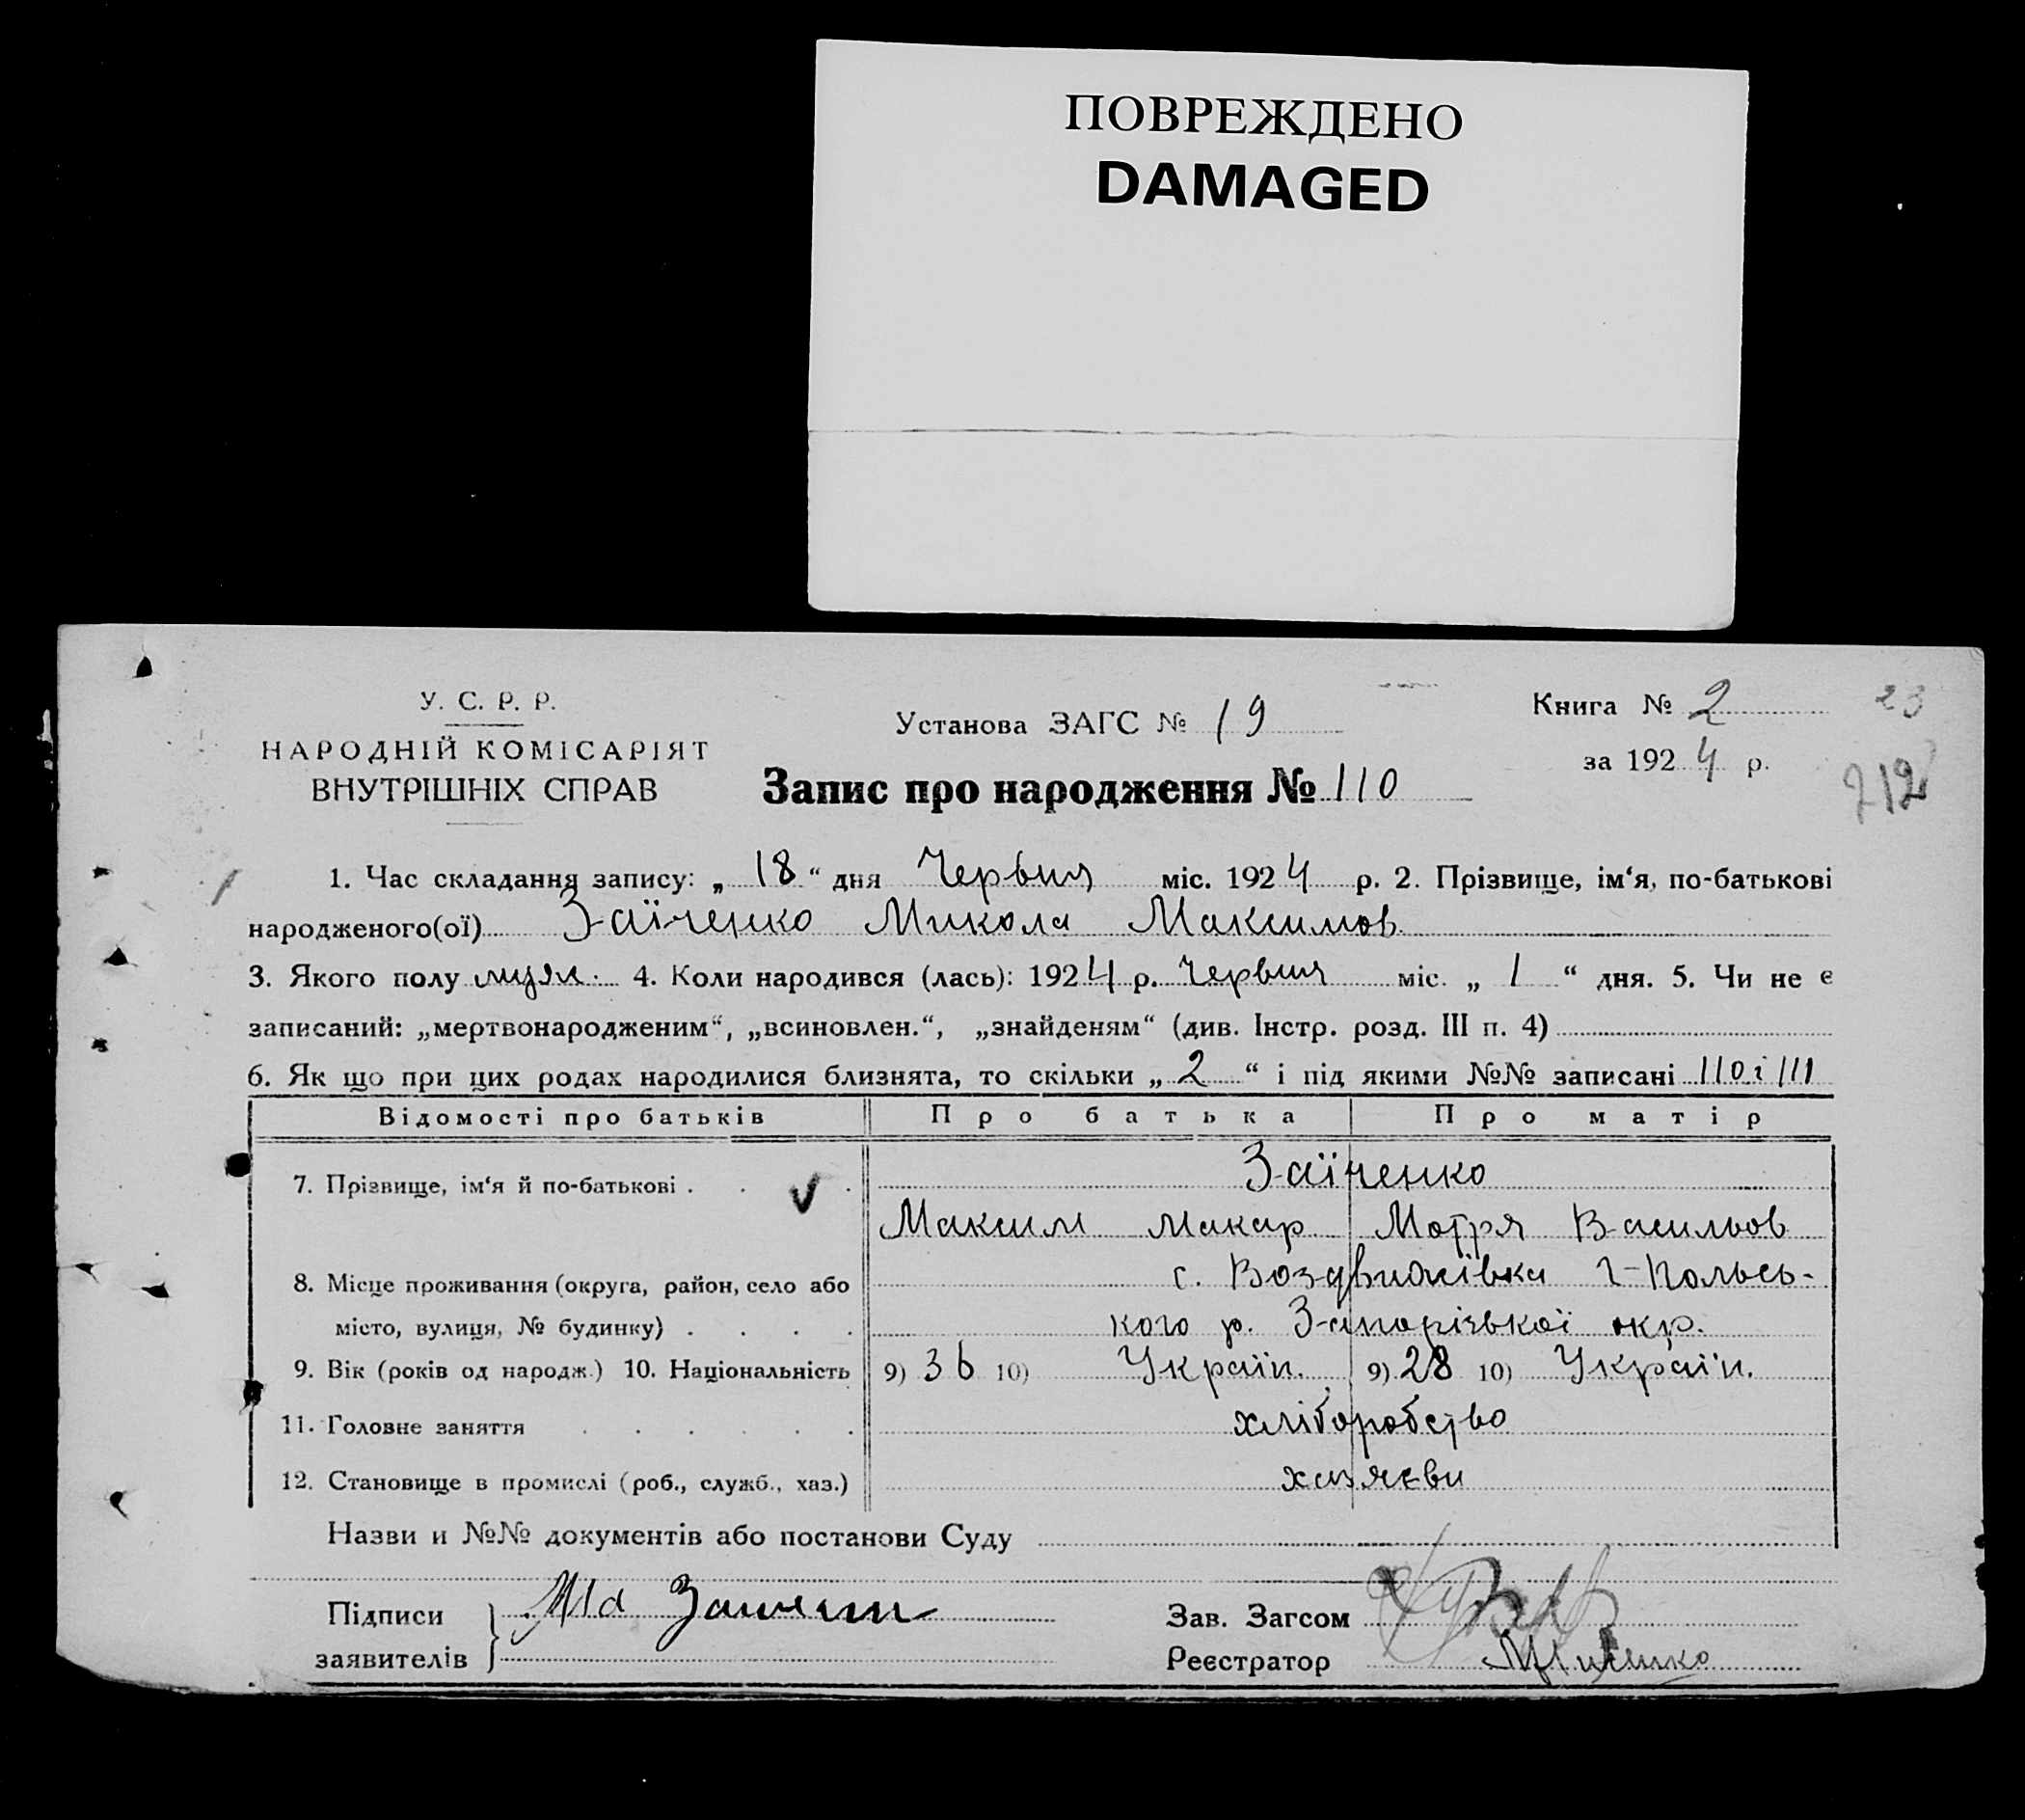 ПОВРЕЖДЕНО
DAMAGED
У. С. Р. Р.
НАРОДНІЙ КОМІСАРІЯТ
ВНУТРІШНІХ СПРАВ
Установа ЗАГС № 19
Запис про народження № 110
Книга № 2
за 1924 р.
23
212
1. Час складання запису: „ 18 “ дня Червня міс. 1924 р. 2. Прізвище, ім‘я, по-батькові
народженого(ої) Заїченко Микола Максимов
3. Якого полу муж. 4. Коли народився (лась): 1924 р. Червня міс. „ 1 “ дня. 5. Чи не є
записаний: „мертвонародженим“, „всиновлен.“, „знайденям“ (див. Інстр. розд. III п. 4)
6. Як що при цих родах народилися близнята, то скільки „ 2 “ і під якими №№ записані 110 і 111
Відомості про батьків Про батька Про матір
7. Прізвище, ім‘я й по-батькові . . . Заїченко
Максим Макар Мотря Васильов
8. Місце проживання (округа, район, село або с. Воздвижівка Г-Польсь-
місто, вулиця, № будинку) . . . . кого р. Запорізької окр.
9. Вік (років од народж.) 10. Національність 9) 36 10) Україн. 9) 28 10) Україн.
11. Головне заняття . . . . . . хліборобство
12. Становище в промислі (роб., служб., хаз.) хазяєви
Назви и №№ документів або постанови Суду
Підписи
заявителів
Зав. Загсом
Реєстратор